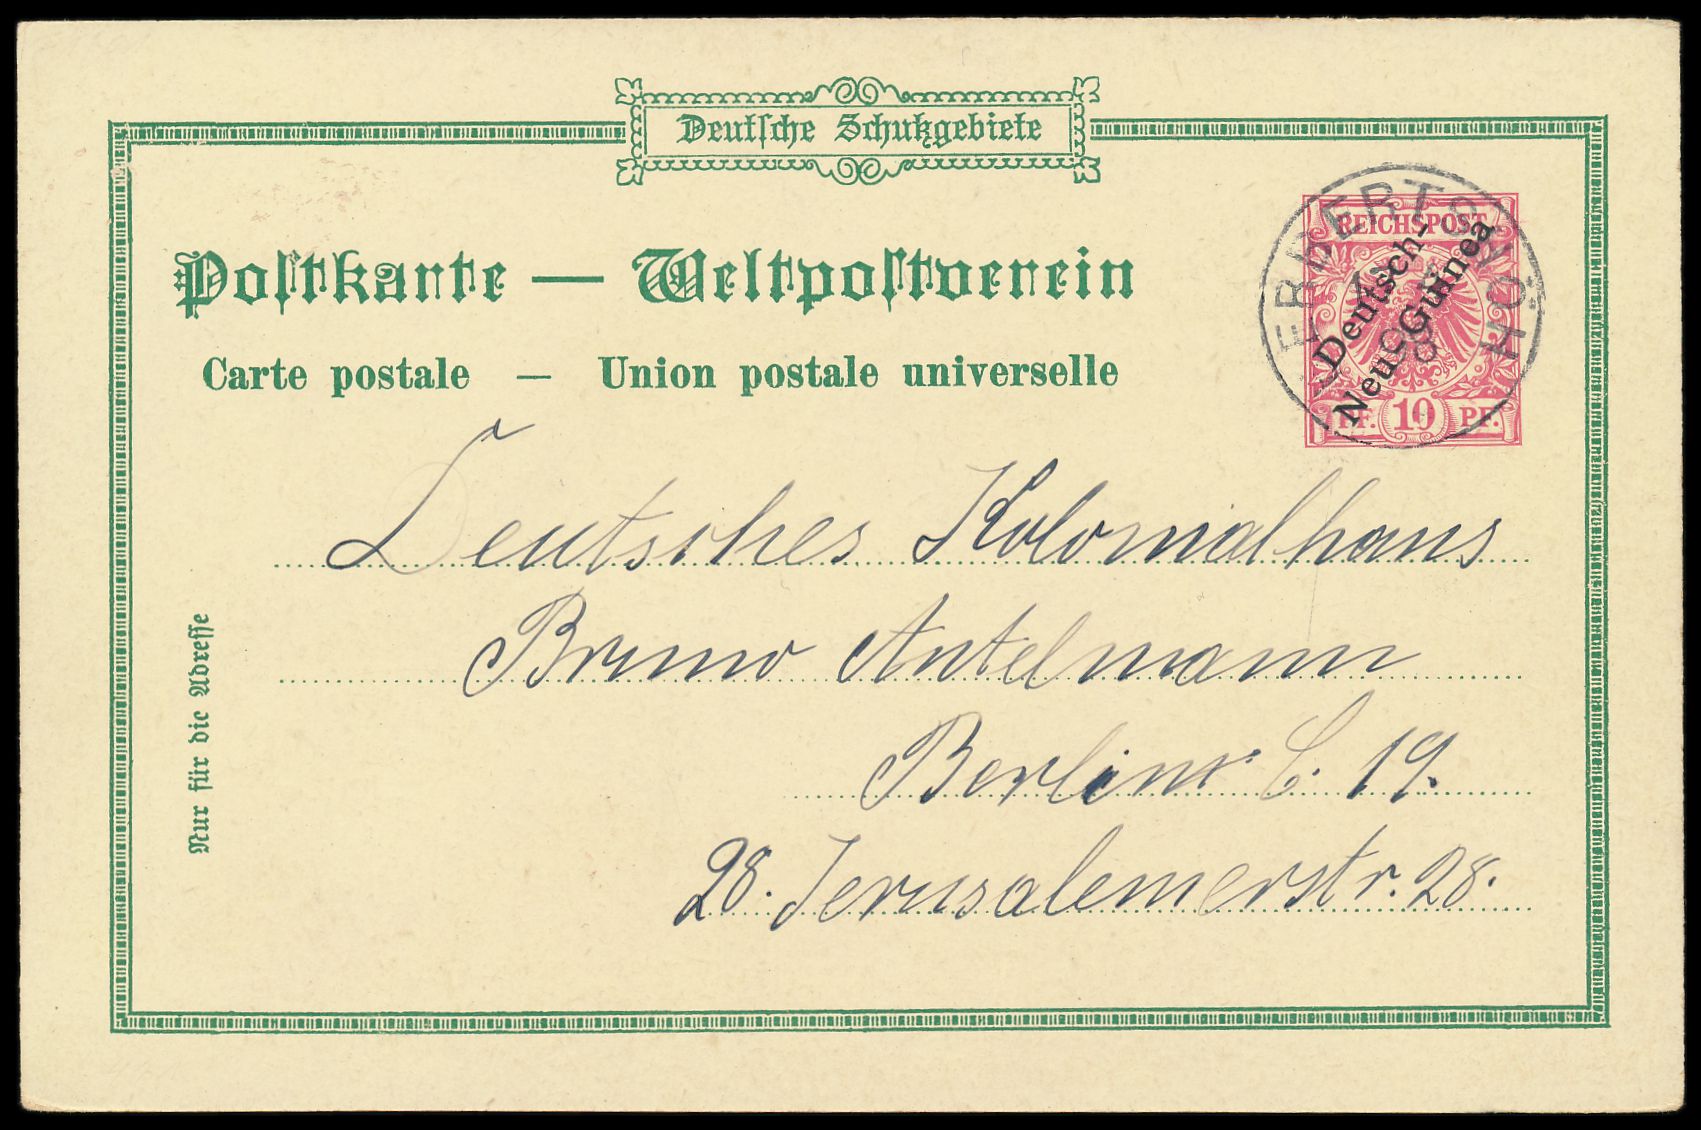 Deutsche Schutzgebiete
Postkarte — Weltpostverein
Carte postale — Union postale universelle
REICHSPOST
Deutsch-
Neu-Guinea
PF. 10 PF.
ERBERTSHÖH
98
Deutsches Kolonialhaus
Bruno Antelmann
Berlin C. 19.
28. Jerusalemerstr. 28.
Nur für die Adresse